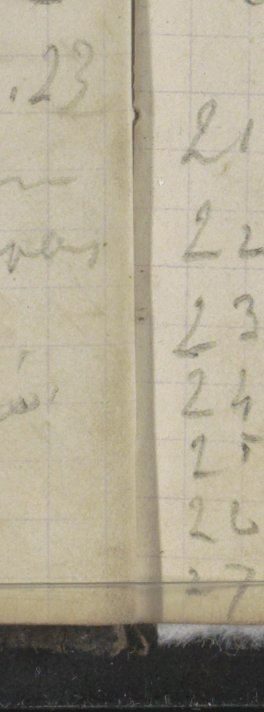 .23
21
22
23
24
25
26
27